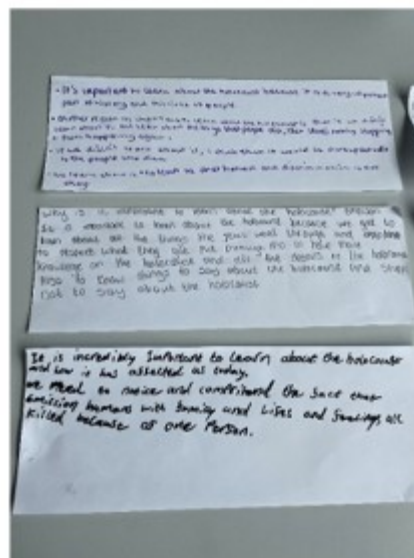 - It's important to learn about the holocaust because it is a very important
part of history and this is to people.
- Another reason its important to learn about the holocaust is that if we
learn about it, and learn about the things that people did, then
from happening again.
- If we didn't learn about it, I think that it would be disrespectful
to the people who died.
- We learn about it to learn that hatred and discrimination is not
okay.
Why is it important to learn about the holocaust?
It is important to learn about the holocaust because we get to
learn about all the things the Jews went through and
to respect what they are put through and to have more
knowledge on the holocaust and all the details of the holocaust
Also to know things to say about the holocaust and things
not to say about the holocaust
It is incredibly Important to learn about the holocaust
and how it has affected us today.
we need to notice and comprihend the fact that
6 million humans with family and lifes and feelings all
killed because of one Person.